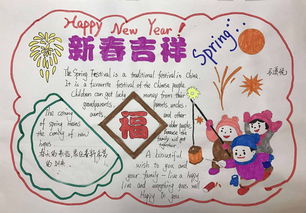 Happy New Year!
新春吉祥
Spring
The Spring Festival is a traditional festival in China.
It is a favourite festival of the Chinese people.
Children can get lucky money from their
grandparents, parents, uncles
aunts and other
people because
The coming
of spring heralds
the coming of new
hopes
福
A beautiful
wish to you and
your family - live a happy
life and everything goes well
Happy to you